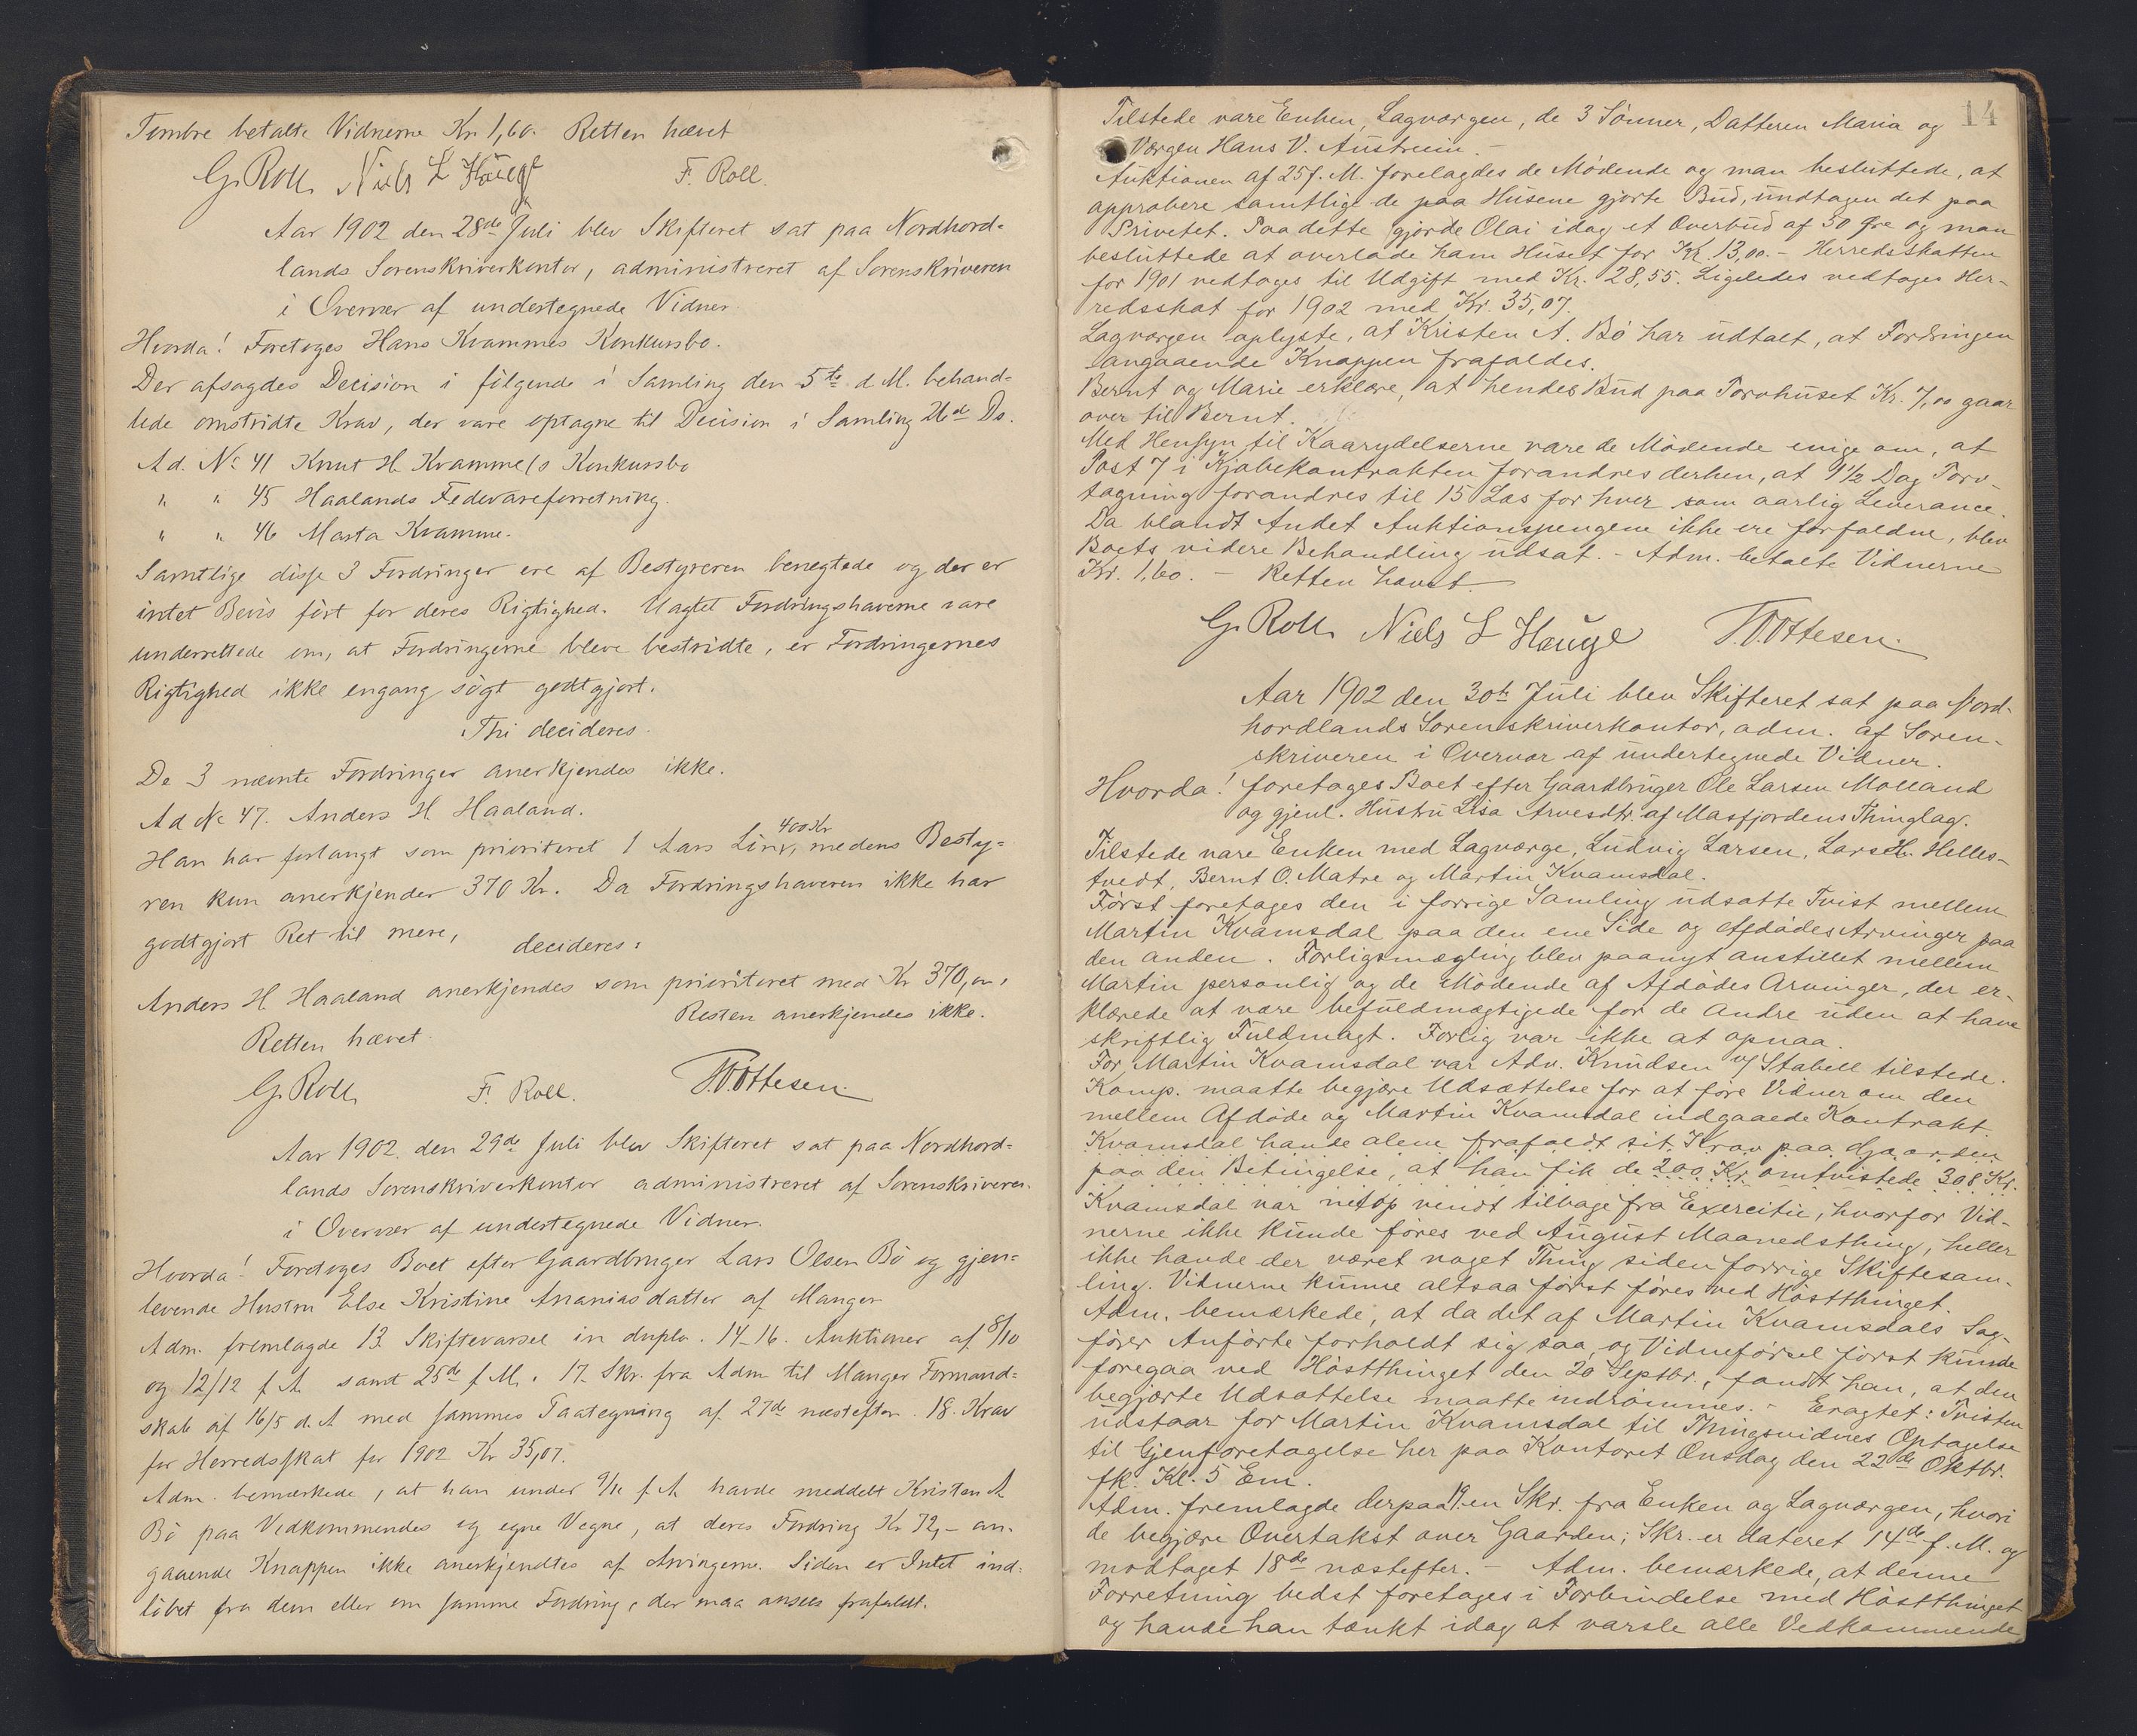 Tombre betalte Vidnerne Kr 1,60. Retten hævet
G. Roll. Niels L Hauge F. Roll.
Aar 1902 den 28de Juli blev Skifteret sat paa Nordhord-
lands Sorenskriverkontor, administreret af Sorenskriveren
i Overvær af undertegnede Vidner.
Hvorda! Foretoges Hans Kvammes Konkursbo.
Der afsagdes Decision i følgende i Samling den 5te d. M. behand-
lede omstridte Krav, der vare optagne til Decision i Samling 26de Ds.
Ad. No 41 Knut H. Kvamme's Konkursbo
" " 45 Haalands Fedevareforretning.
" " 46 Marta Kvamme.
Samtlige disse 3 Fordringer ere af Bestyreren benegtede og der er
intet Bevis ført for deres Rigtighed. Uagtet Fordringshaverne vare
underrettede om, at Fordringerne bleve bestridte, er Fordringernes
Rigtighed ikke engang søgt godtgjort.
Thi decideres.
De 3 nævnte Fordringer anerkjendes ikke.
Ad No 47. Anders H. Haaland.
400 Kr
Han har forlangt som prioriteret 1 Aars Løn, medens Besty-
ren kun anerkjender 370 Kr. Da Fordringshaveren ikke har
godtgjort Ret til mere, decideres:
Anders H Haaland anerkjendes som prioriteret med Kr 370,00.
Resten anerkjendes ikke.
Retten hævet.
G. Roll. F. Roll. T.O. Ottesen.
Aar 1902. den 29de Juli blev Skifteret sat paa Nordhord-
lands Sorenskriverkontor administreret af Sorenskriveren
i Overvær af undertegnede Vidner.
Hvorda! Foretoges Boet efter Gaardbruger Lars Olsen Bø og gjen-
levende Hustru Else Kristine Ananiasdatter af Manger
Adm. fremlagde 13. Skiftevarsel in duplo. 14-16. Auktioner af 8/10
og 12/12 f A. samt 25de f. M. 17. Skr. fra Adm. til Manger Formand-
skab af 16/5 d. A med sammes Paategning af 27de næstefter. 18. Krav
for Herredsskat for 1902 Kr 35,07.
Adm. bemærkede, at han under 9/11 f A. havde meddelt Kristen A
Bø paa Vedkommendes og egne Vegne, at deres Fordring Kr 72,- an-
gaaende Knappen ikke anerkjendtes af Arvingerne. Siden er Intet ind-
løbet fra dem eller om samme Fordring, der maa ansees frafaldt.
14
Tilstede vare Enken, Lagværgen, de 3 Sønner, Datteren Maria og
Værgen Hans V. Austrum. -
Auktionen af 25 f. M. forelagdes de Mødende og man besluttede, at
approbere samtlige de paa Husene gjorte Bud, undtagen det paa
Privetet. Paa dette gjorde Olai idag et Overbud af 50 Øre og man
besluttede at overlade ham Huset for Kr. 13,00. - Herredsskatten
for 1901 vedtoges til Udgift med Kr. 28,55. Ligeledes vedtoges Her-
redsskat for 1902 med Kr. 35,07.
Lagværgen oplyste, at Kristen A. Bø har udtalt, at Fordringen
angaaende Knappen frafaldes.
Bernt og Marie erklære, at hendes Bud paa Torvhuset Kr. 7,00 gaar
over til Bernt.
Med Hensyn til Kaarydelserne vare de Mødende enige om, at
Post 7 i Kjøbekontrakten forandres derhen, at 1 1/2 Dag Torv-
tagning forandres til 15 Læs for hver som aarlig Leverance.
Da blandt Andet Auktionspengene ikke ere forfaldne, blev
Boets videre Behandling udsat. - Adm. betalte Vidnerne
Kr. 1,60. - Retten hævet
G. Roll. Niels L Hauge T.O. Ottesen.
Aar 1902 den 30te Juli blev Skifteret sat paa Nord-
hordlands Sorenskriverkontor, adm. af Soren-
skriveren i Overvær af undertegnede Vidner.
Hvorda! foretoges Boet efter Gaardbruger Ole Larsen Molland
og gjenl. Hustru Lisa Arnesdtr. af Masfjordens Thinglag.
Tilstede vare Enken med Lagværge, Ludvig Larsen, Lars H. Helles-
tvedt, Bernt O. Matre og Martin Kvamsdal.
Først foretoges den i forrige Samling udsatte Tvist mellem
Martin Kvamsdal paa den ene Side og Afdødes Arvinger paa
den anden. Forligsmægling blev paanyt anstillet mellem
Martin personlig og de Mødende af Afdødes Arvinger, der er-
klærede at være befuldmægtigede for de Andre uden at have
skriftlig Fuldmagt. Forlig var ikke at opnaa.
For Martin Kvamsdal var Adv. Knudsen v/ Stabell tilstede.
Komp. maatte begjære Udsættelse for at føre Vidner om den
mellem Afdøde og Martin Kvamsdal indgaaede Kontrakt.
Kvamsdal havde alene frafaldt sit Krav paa Gaarden
paa den Betingelse, at han fik de 200 Kr. omtvistede 308 Kr.
Kvamsdal var netop vendt tilbage fra Exercitie, hvorfor Vid-
nerne ikke kunde føres ved August Maanedsthing, heller
ikke havde der været noget Thing siden forrige Skiftesam-
ling. Vidnerne kunne altsaa først føres ved Høstthinget.
Adm. bemærkede, at da det af Martin Kvamsdals Sag-
fører Anførte forholdt sig saa, og Vidneførsel først kunde
foregaa ved Høstthinget den 20 Septbr., fandt han, at den
begjærte Udsættelse maatte indrømmes. - Eragtet: Tvisten
udstaar for Martin Kvamsdal til Thingsvidnes Optagelse
til Gjenforetagelse her paa Kontoret Onsdag den 22de Oktbr.
fk. Kl. 5 Em.
Adm. fremlagde derpaa 19. en Skr. fra Enken og Lagværgen, hvori
de begjære Overtakst over Gaarden; Skr. er dateret 14de f. M. og
modtaget 18de næstefter. - Adm. bemærkede, at denne
Forretning bedst foretages i Forbindelse med Høstthinget
og havde han tænkt idag at varsle alle Vedkommende